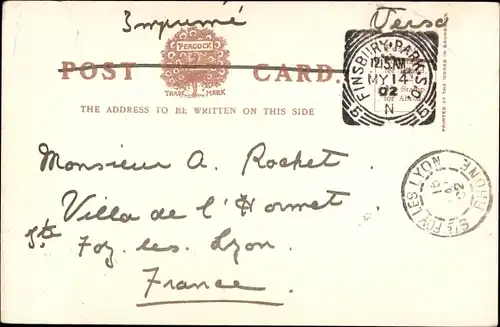 Imprimé Verso
POST CARD.
PEACOCK
TRADE MARK
FINSBURY PARK S.O.
12.15 AM
MY 14
02
N
THE ADDRESS TO BE WRITTEN ON THIS SIDE
PRINTED AT THE WORKS IN
Monsieur A. Rochet
Villa de l'Hormet
Ste Foy les Lyon.
France.
STE FOY LES LYON RHONE
15
02